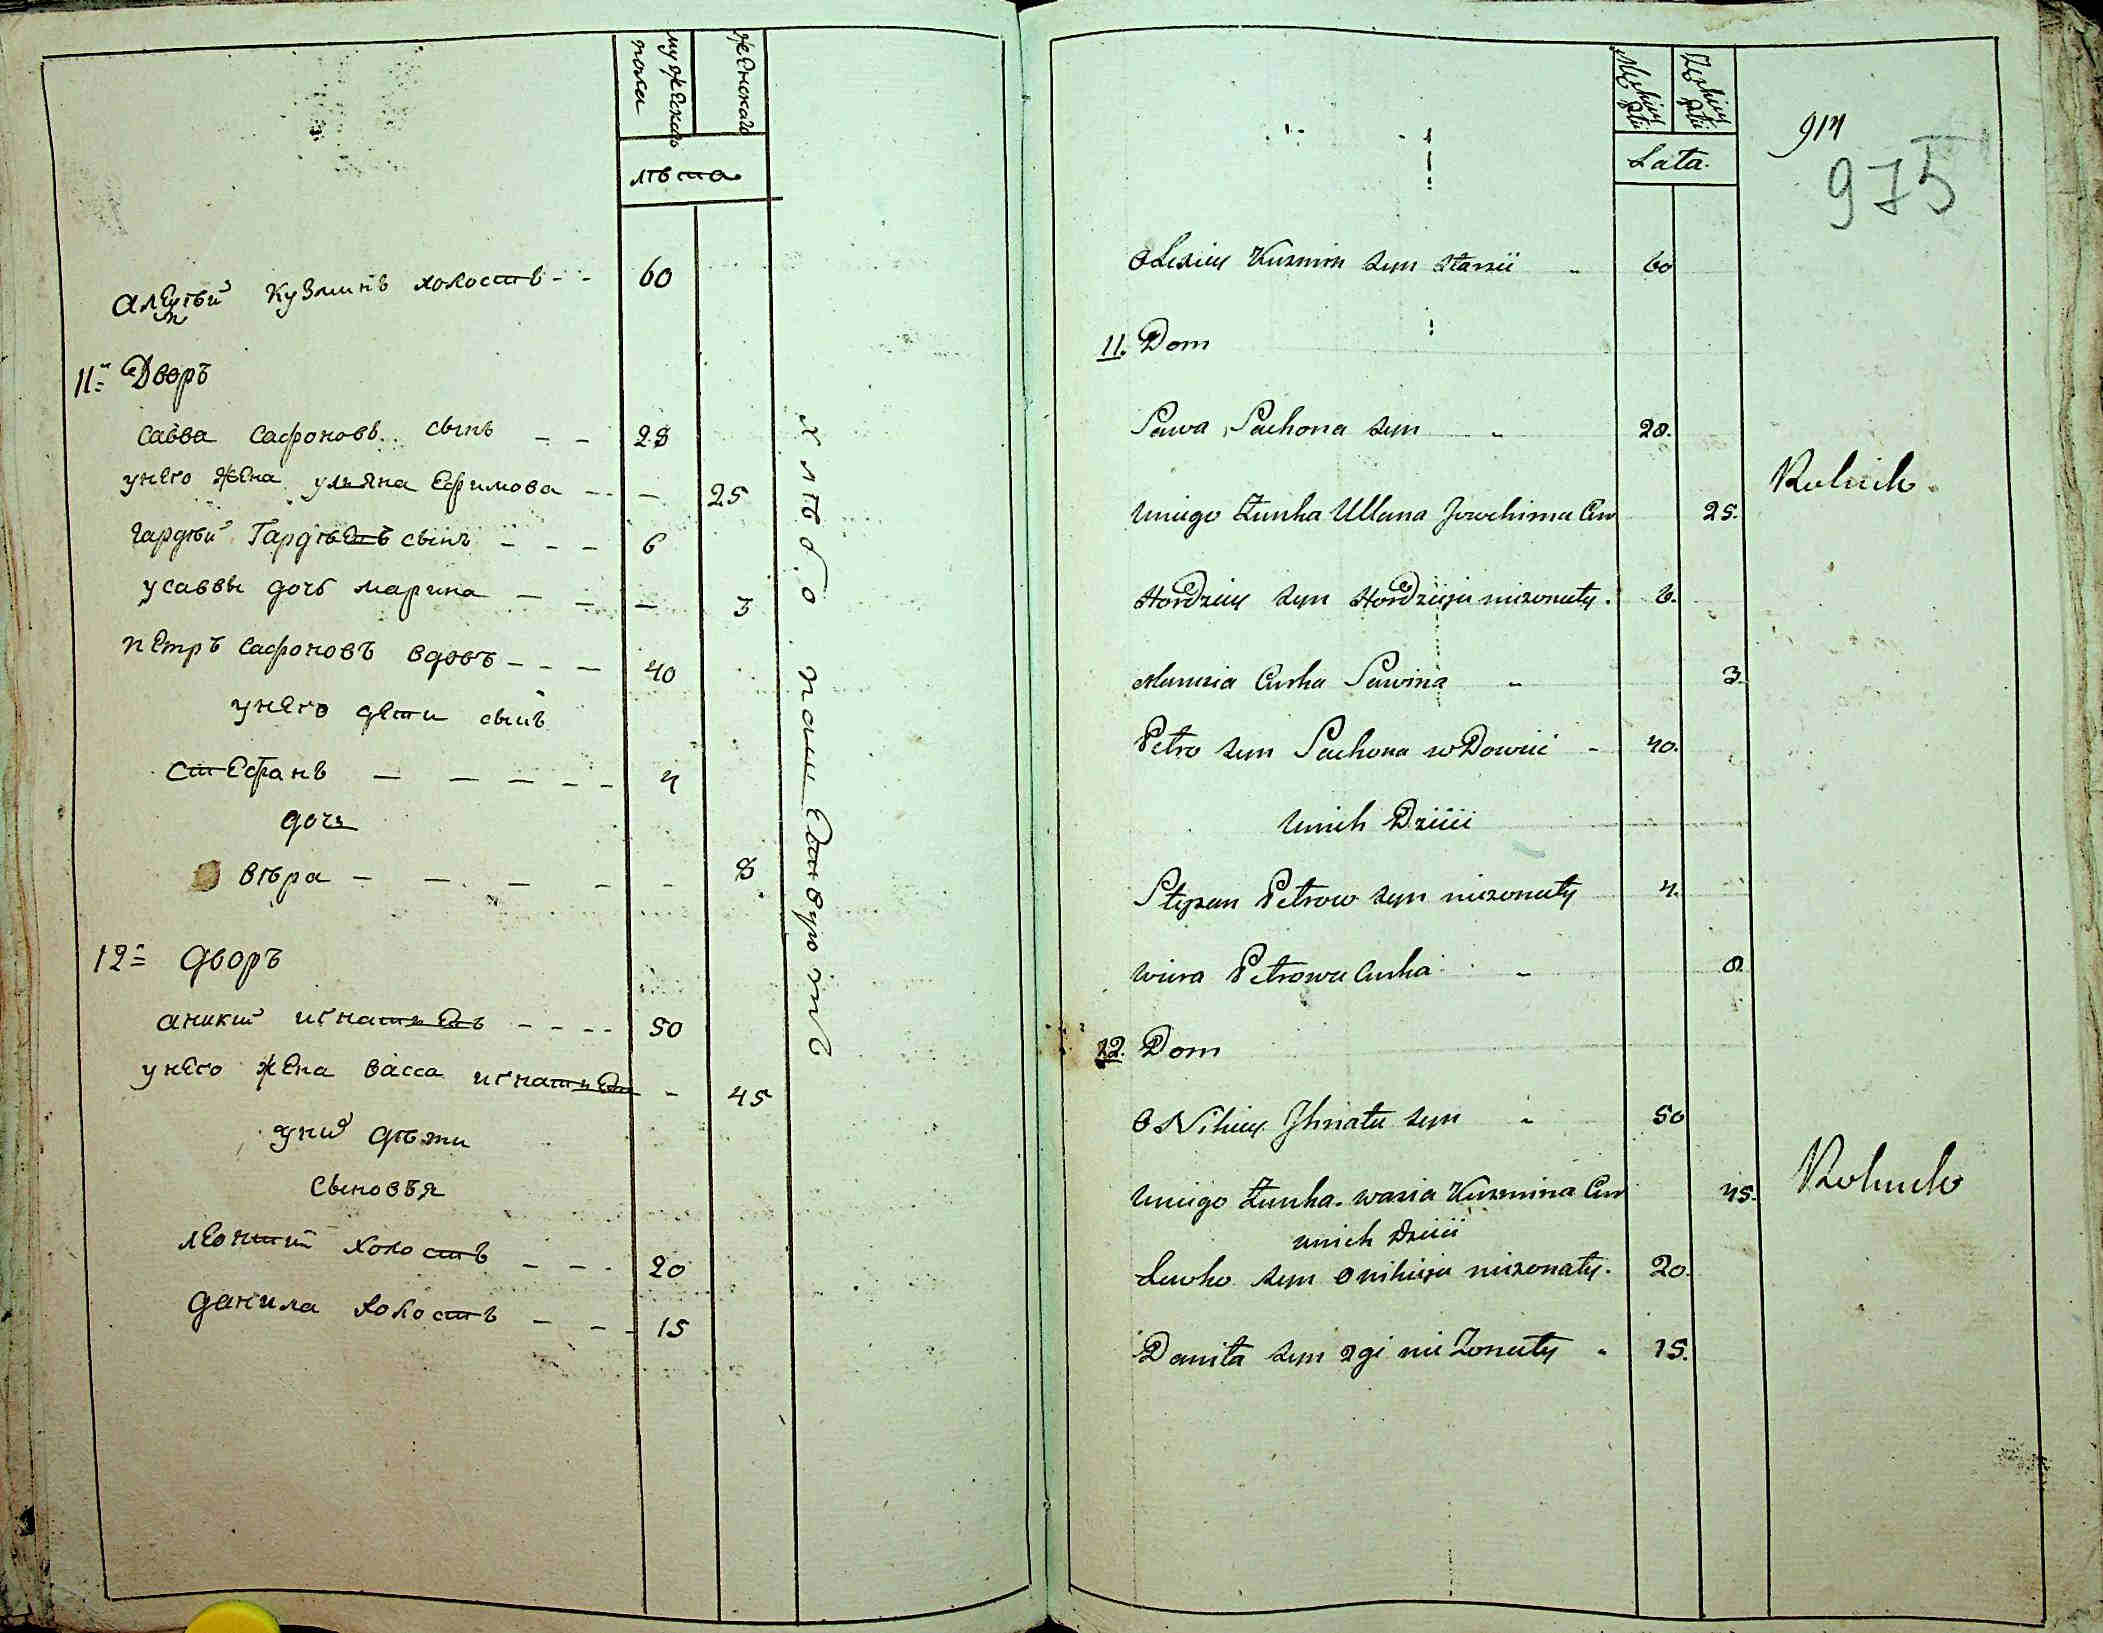 мужескаго пола
женскаго
лѣта
Алексѣй Кузминъ холостъ - - 60
11й Дворъ
Савва Сафоновъ сынъ - - 28
у него жена ульяна Ефимова - - - 25
гардѣй Гардѣевъ сынъ - - - 6
у саввы дочь марина - - - 3
петръ Сафоновъ вдовъ - - - 40
у него дети сынъ
Стефанъ - - - - - 4
дочь
вѣра - - - - - 8
12й дворъ
аникий игнатьевъ - - - - 50
у него жена васса игнатьева - 45
у них дѣти
сыновья
леонтий холостъ - - - 20
данила холостъ - - - 15
хлѣбопашествуютъ
Męzkiey Płci
Zeńskiey Płci
Lata.
914
975
Olexiey Kuzmin syn Starszii " 60
11. Dom
Sawa Sachona syn " 28.
Uniego Zunka Ullana Jowchima Cur 25.
Hordziey syn Hordzieja niezonaty. 6.
Maruzia Curka Sawina " 3.
Petro syn Sachona wDowiec - 40.
Unich Dzieci
Stepan Petrow syn niezonaty 4.
wiera Petrowa Curka " 8
Rolnik
12. Dom
ONikiey Ihnata syn " 50
Uniego Zunka wasia Kuzmina Cur 45.
unich Dzieci
Lewko syn onikieja niezonaty. 20.
Daniła syn 2gi nie Zonaty " 15.
Rolnik